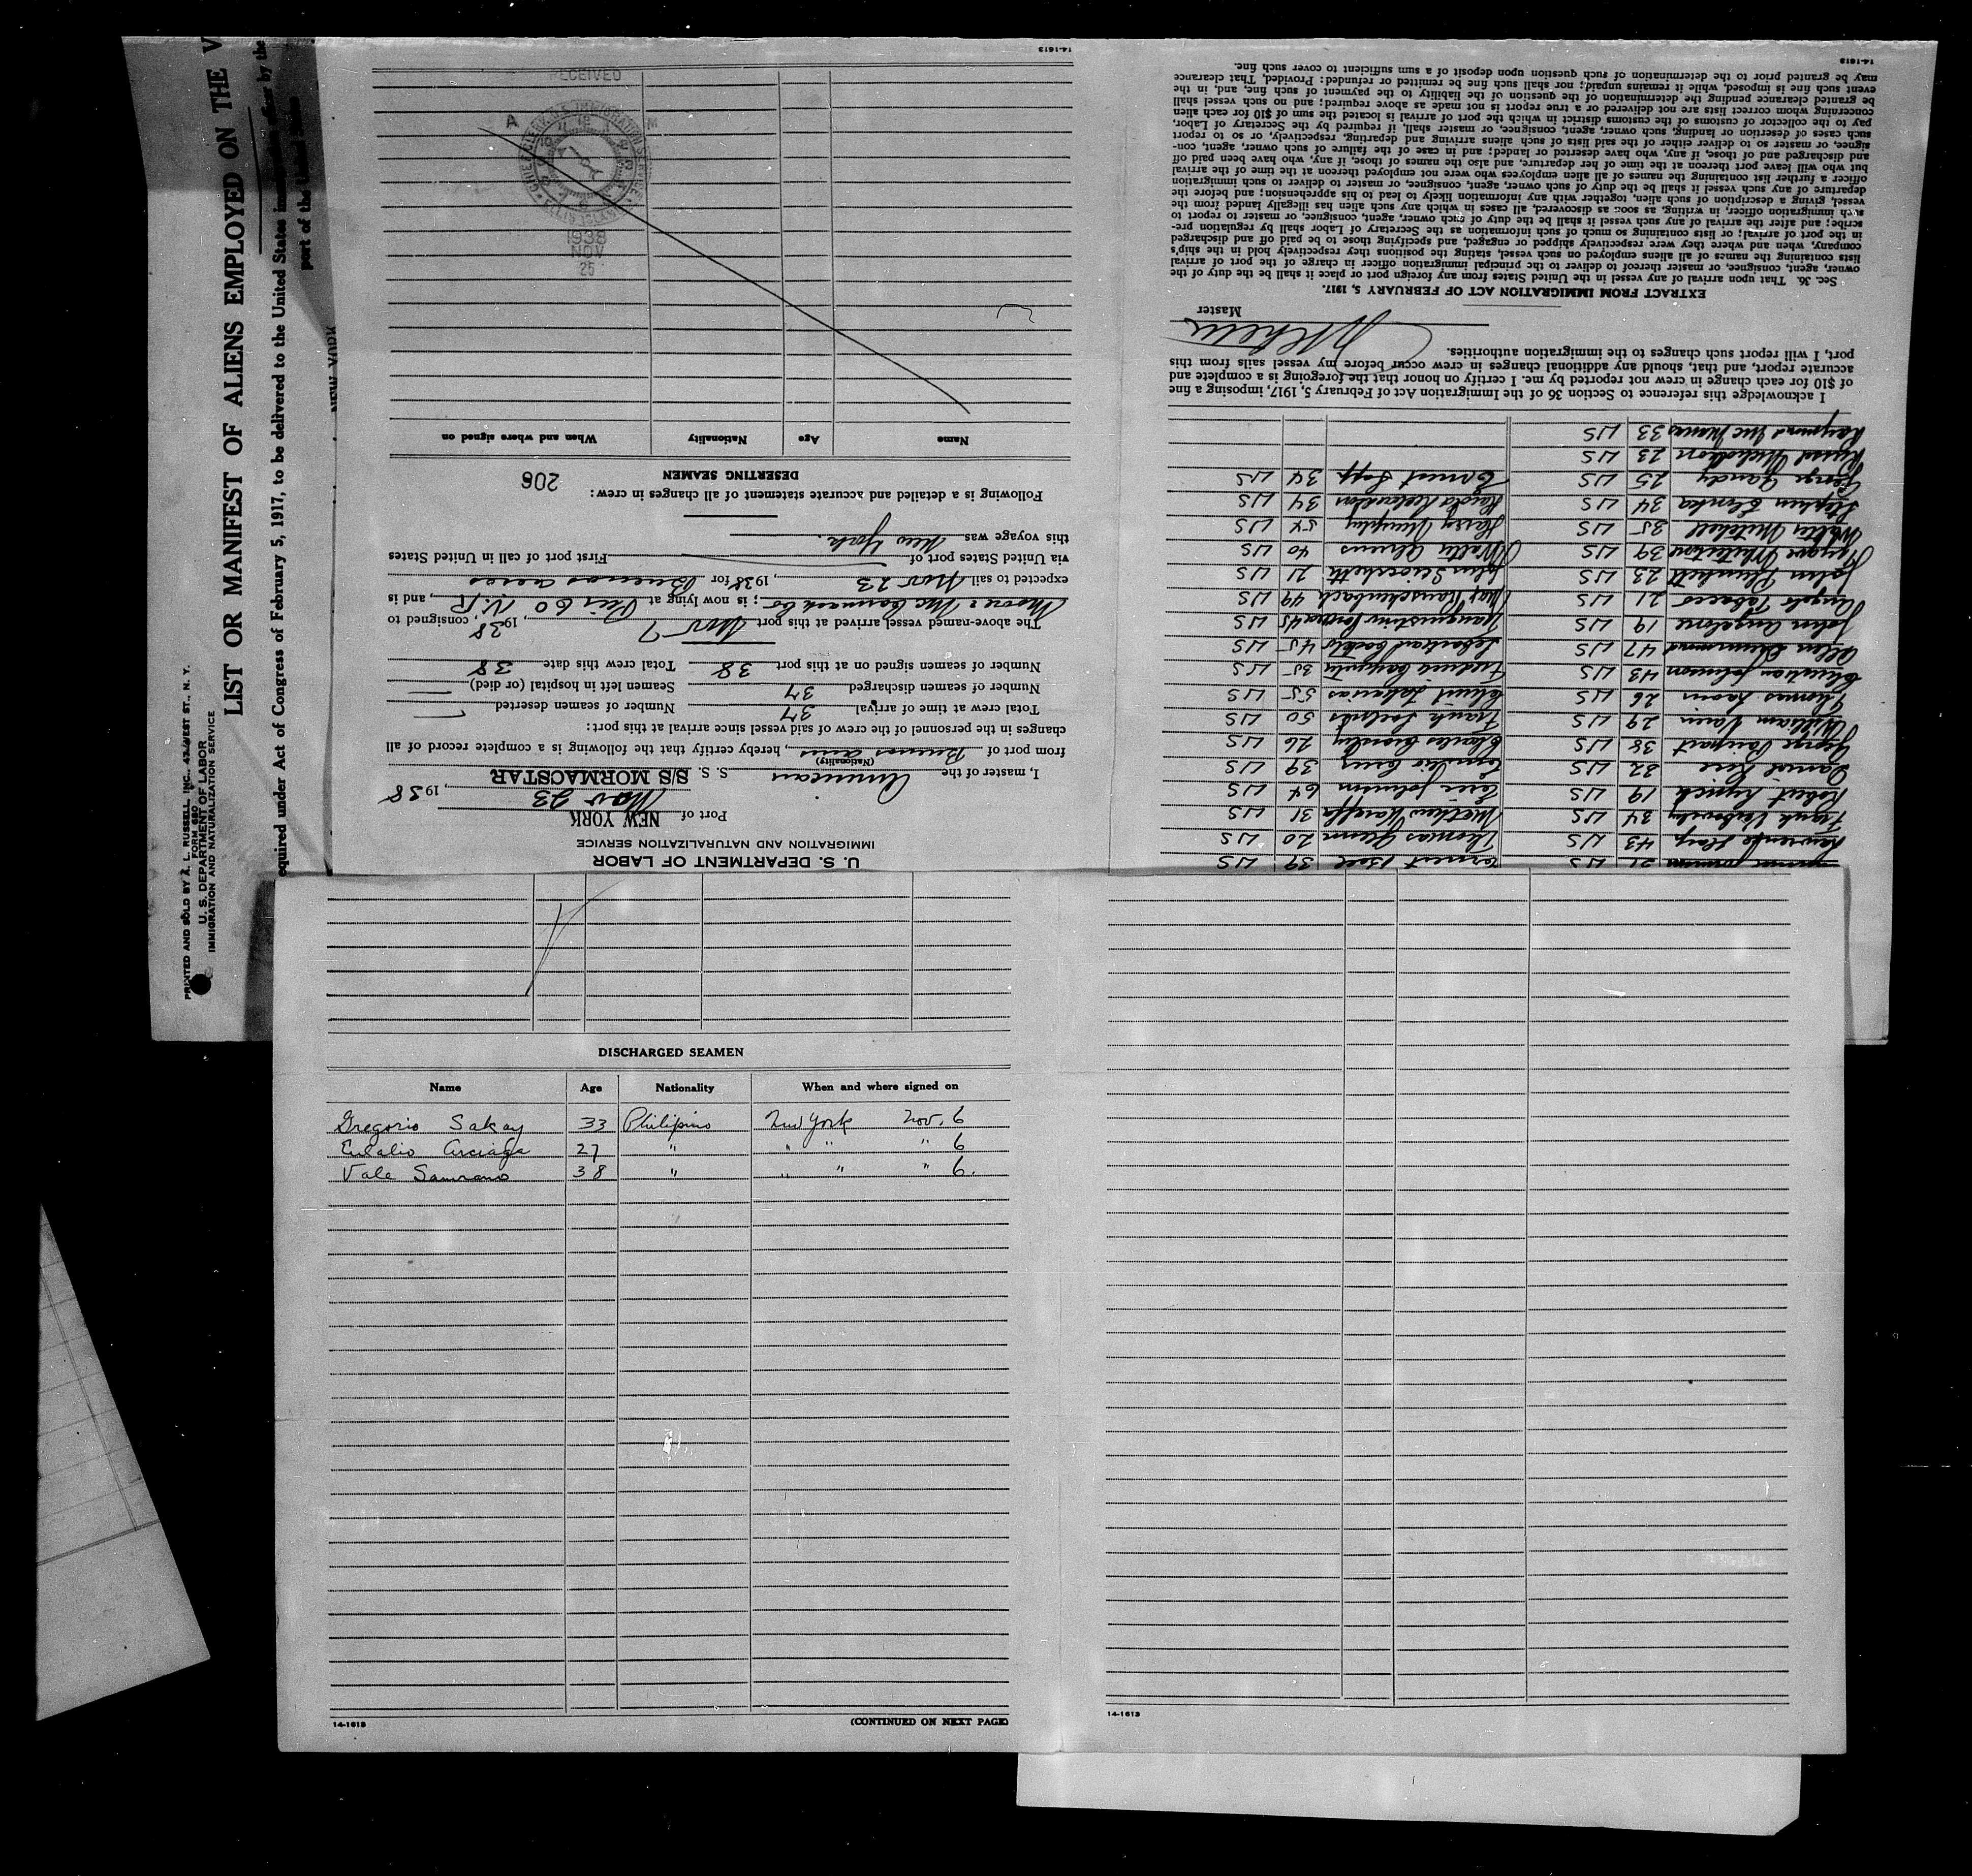 PRINTED AND SOLD BY A. L. RUSSELL, INC., 437 WEST ST., N. Y.
FORM 680
U. S. DEPARTMENT OF LABOR
IMMIGRATION AND NATURALIZATION SERVICE
LIST OR MANIFEST OF ALIENS EMPLOYED ON THE V
equired under Act of Congress of February 5, 1917, to be delivered to the United States
port of the
NEW YORK
U. S. DEPARTMENT OF LABOR
IMMIGRATION AND NATURALIZATION SERVICE
Port of NEW YORK
Nov 23, 1938
I, master of the American S. S. S/S MORMACSTAR
(Nationality)
from port of Buenos Aires, hereby certify that the following is a complete record of all
changes in the personnel of the crew of said vessel since arrival at this port:
Total crew at time of arrival 37 Number of seamen deserted
Number of seamen discharged 37 Seamen left in hospital (or died)
Number of seamen signed on at this port 38 Total crew this date 38
The above-named vessel arrived at this port Nov 7, 1938, consigned to
Moore & McCormack Co; is now lying at Pier 60 N.R., and is
expected to sail Nov 23, 1938 for Buenos Aires
via United States port of First port of call in United States
this voyage was New York.
Following is a detailed and accurate statement of all changes in crew:
206
DESERTING SEAMEN
Name Age Nationality When and where signed on
25
NOV
1938
CHIEF CLERK U.S. IMMIGRATION SERVICE
ELLIS ISLAND
A M
RECEIVED
14-1613
21 US
Lawrence 43 US
Frank 34 US
Robert 19 US
Daniel Rice 32 US
George 38 US
William 29 US
Thomas 26 US
Christian Johnson 43 US
Allen Drummond 47 US
John Angelone 19 US
Angelo Tabacco 21 US
John Plunkett 23 US
39 US
Walter Mitchell 35 US
Stephen 34 US
George Gandy 25 US
Russel Nicholson 23 US
Raymond McManus 33 US
Ernest Bell 39 US
Thomas Glenn 20 US
Matthew 31 US
Johnson 64 US
39 US
Charles Bromley 26 US
Frank 50 US
55 US
Frederick 35 US
45 US
45 US
Max Rauschenbach 49 US
John 21 US
Walter 40 US
Harry Murphy 54 US
Harold 34 US
Ernest Sapp 34 US
I acknowledge this reference to Section 36 of the Immigration Act of February 5, 1917, imposing a fine
of $10 for each change in crew not reported by me. I certify on honor that the foregoing is a complete and
accurate report, and that, should any additional changes in crew occur before my vessel sails from this
port, I will report such changes to the immigration authorities.
Master
EXTRACT FROM IMMIGRATION ACT OF FEBRUARY 5, 1917.
Sec. 36. That upon arrival of any vessel in the United States from any foreign port or place it shall be the duty of the
owner, agent, consignee, or master thereof to deliver to the principal immigration officer in charge of the port of arrival
lists containing the names of all aliens employed on such vessel, stating the positions they respectively hold in the ship's
company, when and where they were respectively shipped or engaged, and specifying those to be paid off and discharged
in the port of arrival; or lists containing so much of such information as the Secretary of Labor shall by regulation pre-
scribe; and after the arrival of any such vessel it shall be the duty of such owner, agent, consignee, or master to report to
such immigration officer, in writing, as soon as discovered, all cases in which any such alien has illegally landed from the
vessel, giving a description of such alien, together with any information likely to lead to his apprehension; and before the
departure of any such vessel it shall be the duty of such owner, agent, consignee, or master to deliver to such immigration
officer a further list containing the names of all alien employees who were not employed thereon at the time of the arrival
but who will leave port thereon at the time of her departure, and also the names of those, if any, who have been paid off
and discharged and of those, if any, who have deserted or landed; and in case of the failure of such owner, agent, con-
signee, or master so to deliver either of the said lists of such aliens arriving and departing, respectively, or so to report
such cases of desertion or landing, such owner, agent, consignee, or master shall, if required by the Secretary of Labor,
pay to the collector of customs of the customs district in which the port of arrival is located the sum of $10 for each alien
concerning whom correct lists are not delivered or a true report is not made as above required; and no such vessel shall
be granted clearance pending the determination of the question of the liability to the payment of such fine, and, in the
event such fine is imposed, while it remains unpaid; nor shall such fine be remitted or refunded: Provided, That clearance
may be granted prior to the determination of such question upon deposit of a sum sufficient to cover such fine.
14-1613
DISCHARGED SEAMEN
Name Age Nationality When and where signed on
Gregorio Sakay 33 Philipino New York Nov. 6
Eulalio Arciaga 27 " " " " 6
Vale Samrano 38 " " " " 6.
14-1613 (CONTINUED ON NEXT PAGE)
14-1613